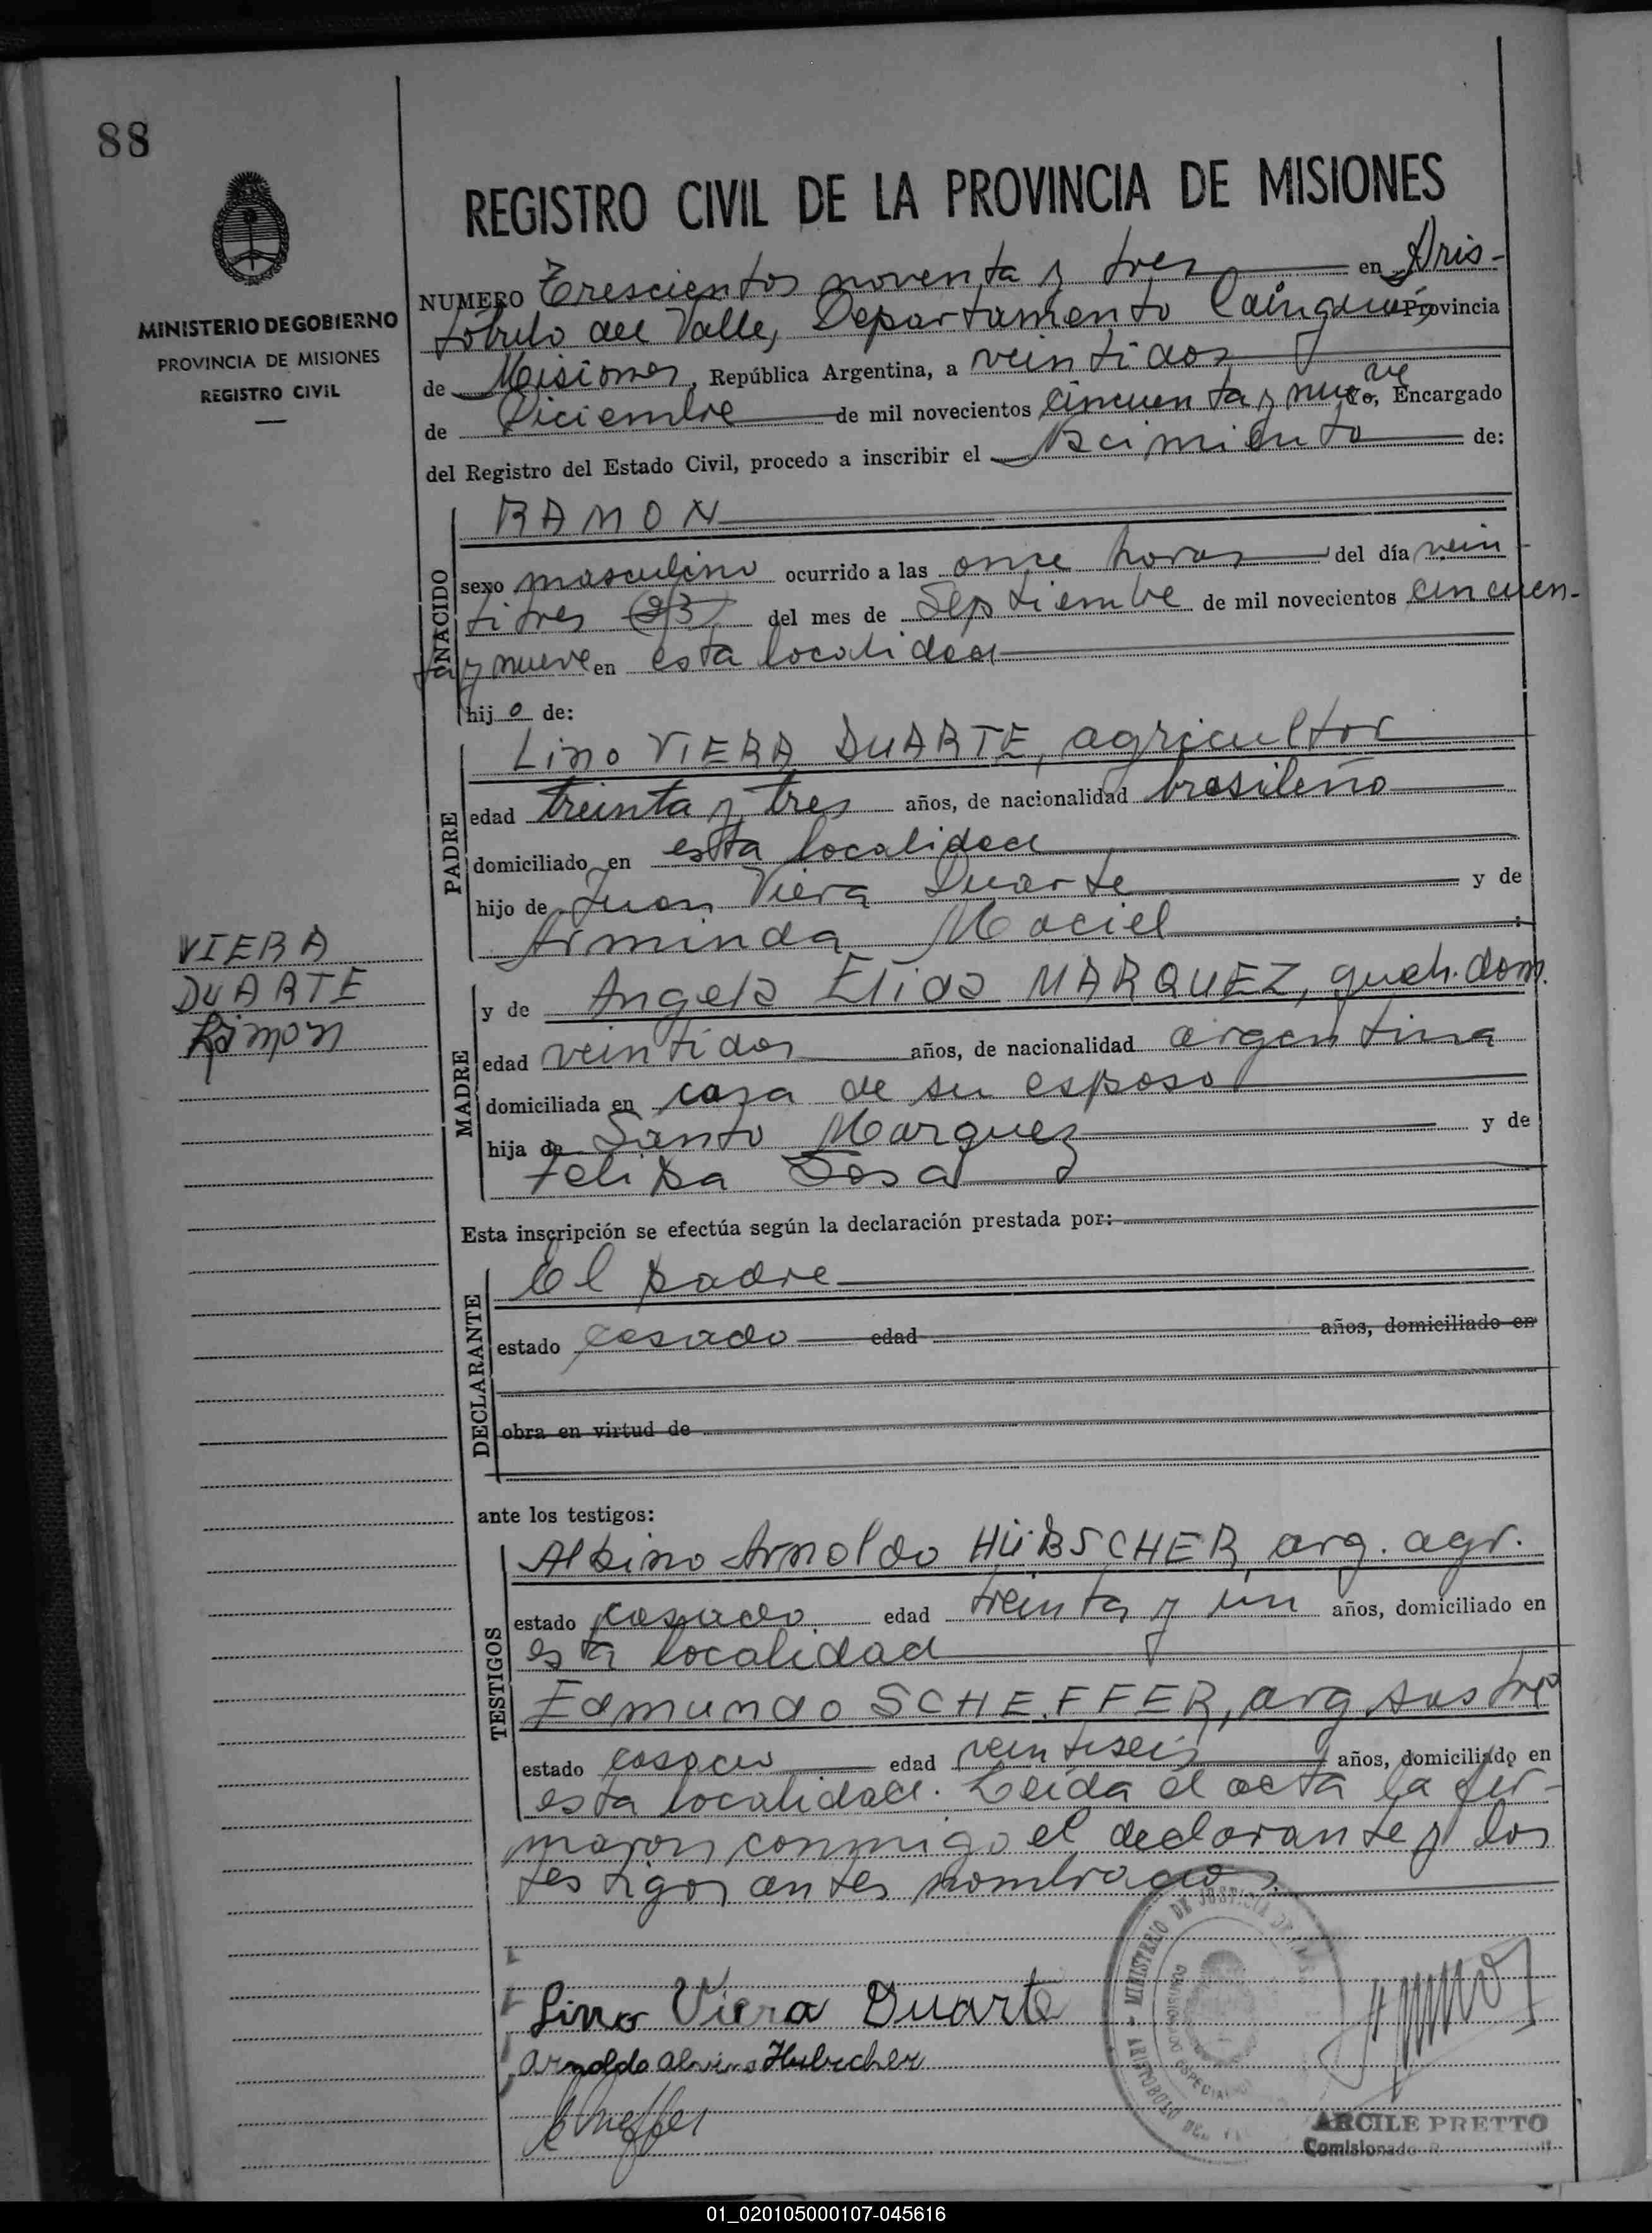 88
MINISTERIO DE GOBIERNO
PROVINCIA DE MISIONES
REGISTRO CIVIL
REGISTRO CIVIL DE LA PROVINCIA DE MISIONES
NUMERO Trescientos noventa y tres en Aris-
tóbulo del Valle, Departamento Cainguás Provincia
de Misiones, República Argentina, a veintidos
de Diciembre de mil novecientos cincuenta y nueve, Encargado
del Registro del Estado Civil, procedo a inscribir el Nacimiento de:
NACIDO
RAMON
sexo masculino ocurrido a las once horas del día vein-
titres (23) del mes de Septiembre de mil novecientos cincuen-
ta y nueve en esta localidad
hijo de:
PADRE
Lino VIERA DUARTE, agricultor
edad treinta y tres años, de nacionalidad brasileño
domiciliado en esta localidad
hijo de Juan Viera Duarte y de
Arminda Maciel
VIERA
DUARTE
Ramon
MADRE
y de Angela Elida MARQUEZ, queh. dom.
edad veintidos años, de nacionalidad argentina
domiciliada en casa de su esposo
hija de Santo Marquez y de
Felipa Sosa
Esta inscripción se efectúa según la declaración prestada por:
DECLARANTE
El padre
estado casado edad años, domiciliado en
obra en virtud de
ante los testigos:
TESTIGOS
Albino Arnoldo HÜBSCHER, arg. agr.
estado casado edad treinta y un años, domiciliado en
esta localidad
Edmundo SCHEFFER, arg sastre
estado casado edad veintiseis años, domiciliado en
esta localidad. Leída el acta la fir-
maron conmigo el declarante y los
testigos antes nombrados.
MINISTERIO DE JUSTICIA
ARISTOBULO DEL
Lino Viera Duarte
Arnoldo Alvino Hubscher
ARCILE PRETTO
Comisionado
01_020105000107-045616